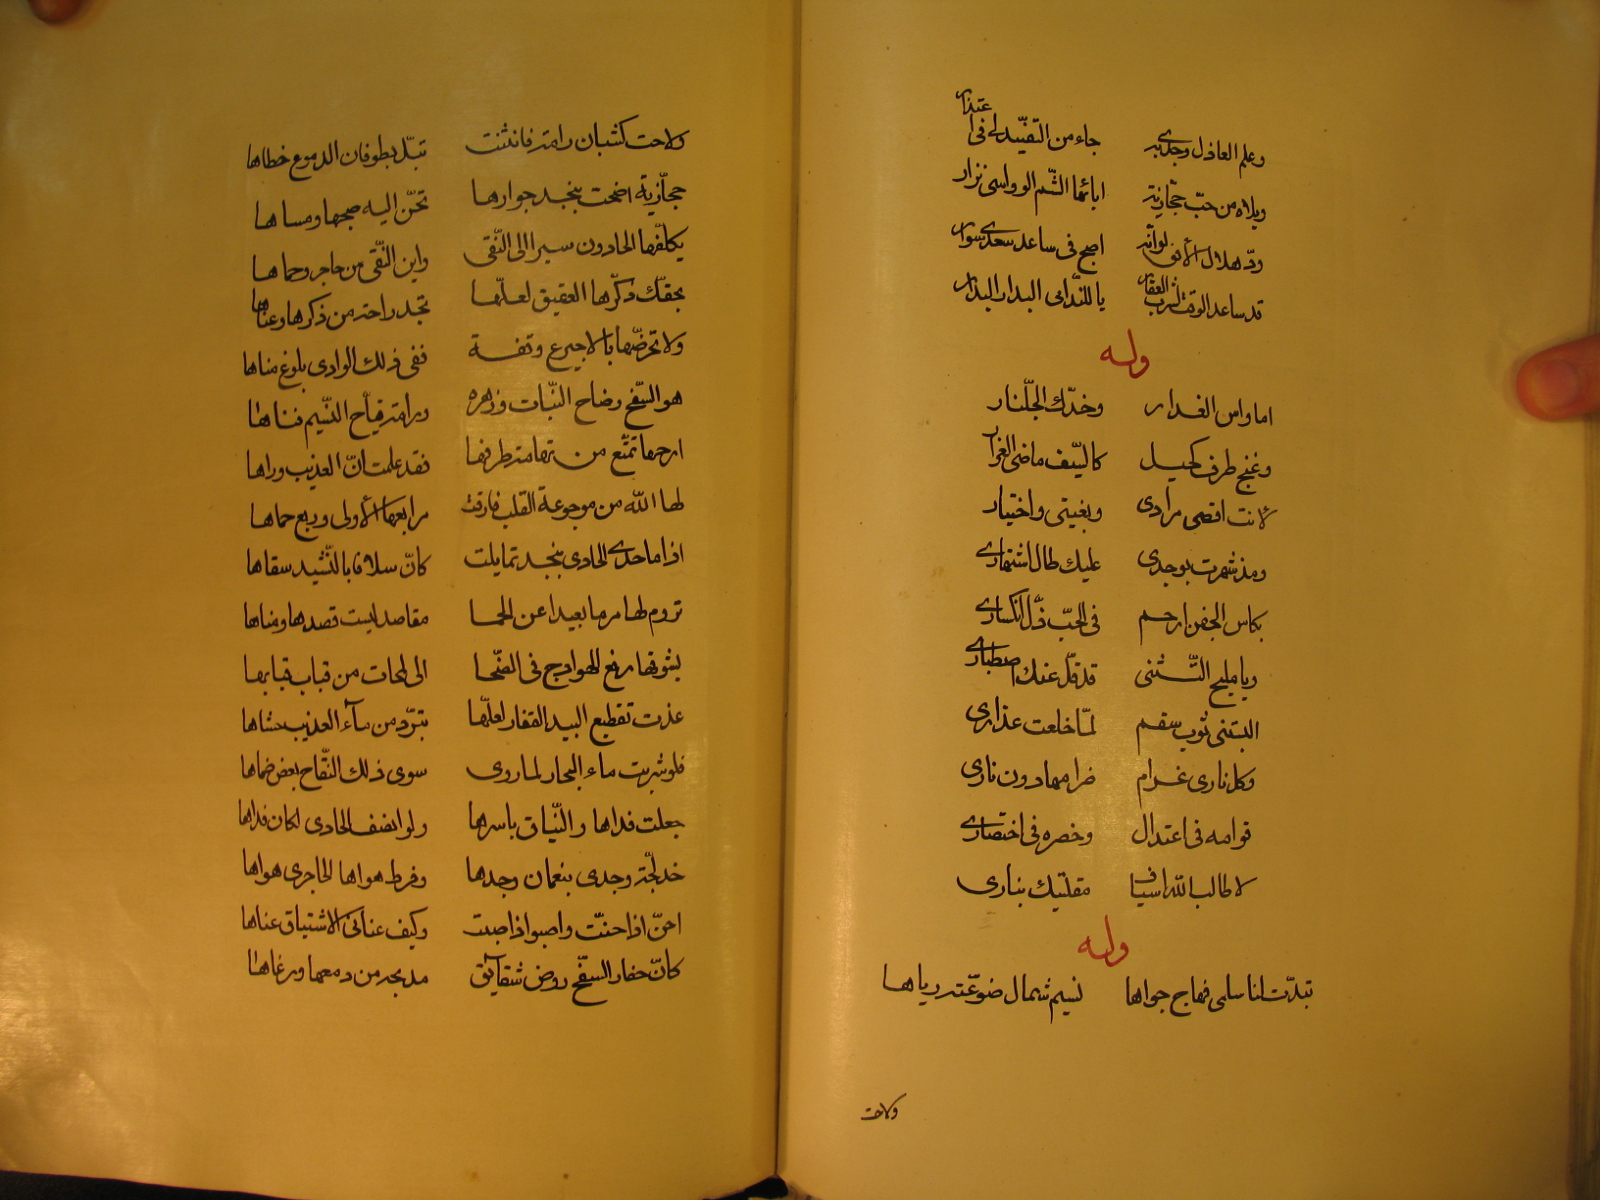 وعلم العاذل وجدي به جاء من التفنيد لي في اعتذار
ويلاه من حبّ حجازيّة اباتها الشّم الرواسى نزار
ودّ هلال الأفق لو انّه اصبح في ساعد سعدى سوار
قد ساعد الوقت لشرب العقار يا للندّامى البدار البدار
وله
اما واس العذار وخدّك الجلّنار
وغنج طرف كحيل كالسّيف ماضى الغرار
لانت اقصى مرادى وبغيتى واختيار
ومذ شهرت بوجدى عليك طال اشتهاري
بكاس الجفن ارحم في الحبّ ذلّ انكساري
ويا مليح التّثنى قد قلّ عنك اصطباري
البستنى ثوب سقم لمّا خلعت عذارى
وكل نارى غرام ضرامها دون نارى
قوامه في اعتدال وخصره في اختصاري
لا طالب الله اسياف مقلتيك بثارى
وله
تبدّت لنا سلمى فهاج جواها نسيم شمال ضوّعته رياها
ولاحت
ولاحت كثبان رامة فانثنت تبلّ بطوفان الدموع خطاها
حجازية اضحت بنجد جوارها تحنّ اليه صبحها ومساها
يكلّفها الحادون سيرا الى النّقى واين النّقى من حاجر وحماها
بحقّك ذكّرها العقيق لعلّها تجد راحة من ذكرها وعناها
ولا تحرضّها بالاجيرع وقفة ففى ذلك الوادى بلوغ مناها
هو السّفح رضاح النّبات وزهره ورامة فيّاح النّسيم فناها
ارحها تمتّع من تهامة طرفها فقد علمت انّ العذيب وراها
لها الله من موجوعة القلب فارقت مرابعها الأولى وربع حماها
اذا ما حدى الحادى بنجد تمايلت كانّ سلافا بالنّشيد سقاها
تروم لها مرما بعيدا عن الحما مقاصد ليست قصدها ومناها
يشوقها رفع الهوادج في الضّحا الى لمحات من قباب قبابها
غذت تقطيع البيد القفار لعلّها تبرّد من مآء العذيب حشاها
فلو شربت ماء البحار لما روى سوى ذلك النّقاح بعض ظماها
جعلت فداها والنّياق باسرها ولو انصف الحادى لكان فداها
خدلّجة وجدى بنعمان وجدها وفرط هواها الحاجرى هواها
احنّ اذا حنّت واصبو اذا صبت وكيف عنانى الاشتياق عناها
كانّ حفار السفّح روض شقآئق مدبجه من دمعها ورغاها